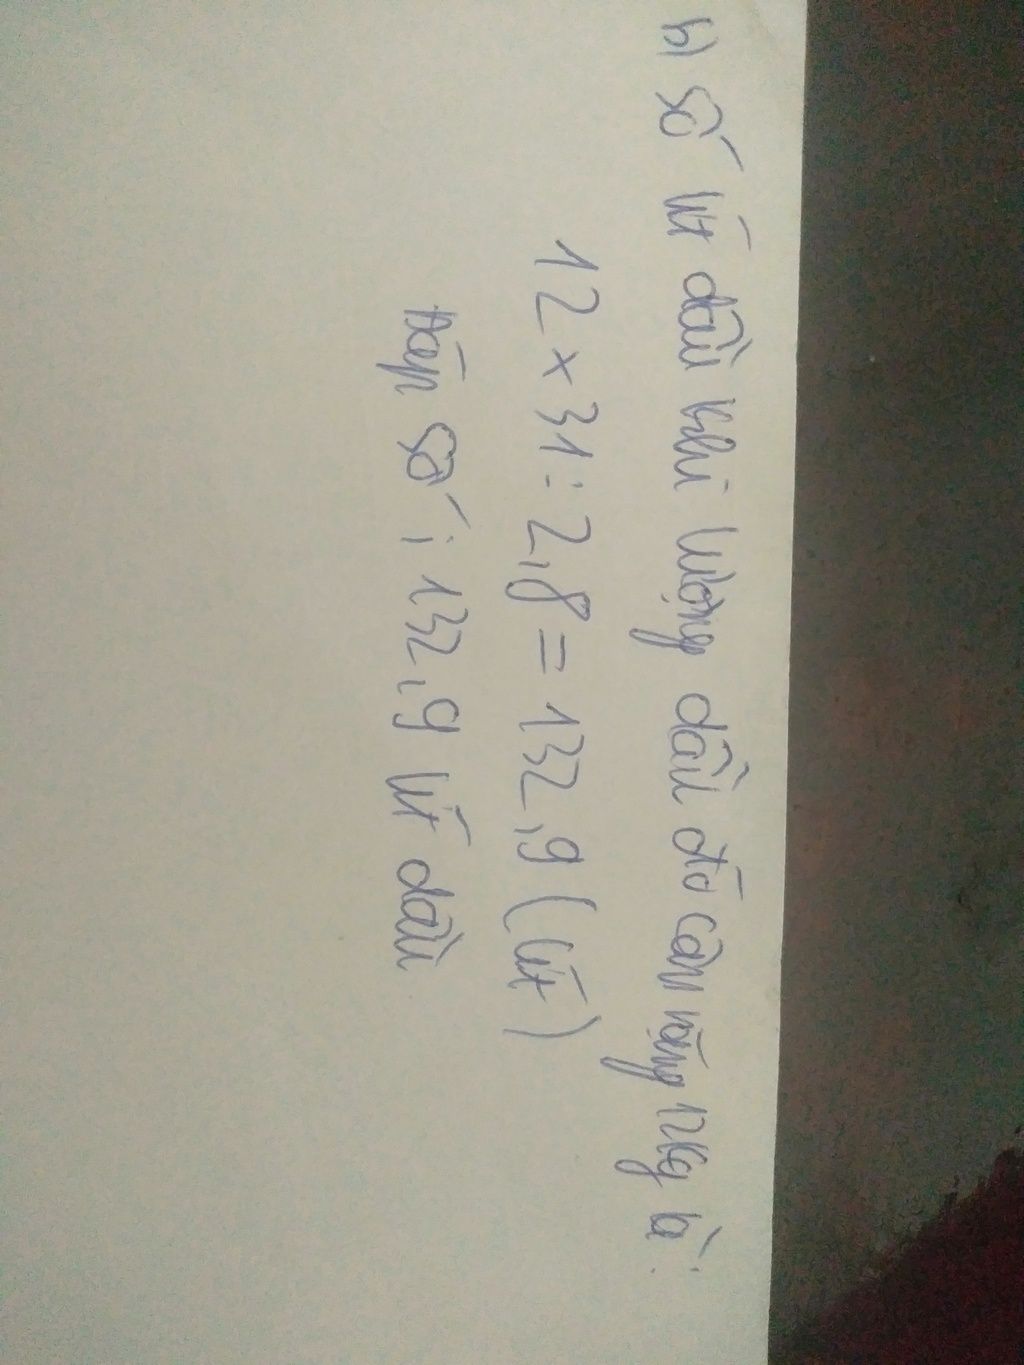 b) Số lít dầu khi lượng dầu đó cân nặng 12kg là:
12 × 31 : 2,8 = 132,9 (lít)
Đáp số : 132,9 lít dầu